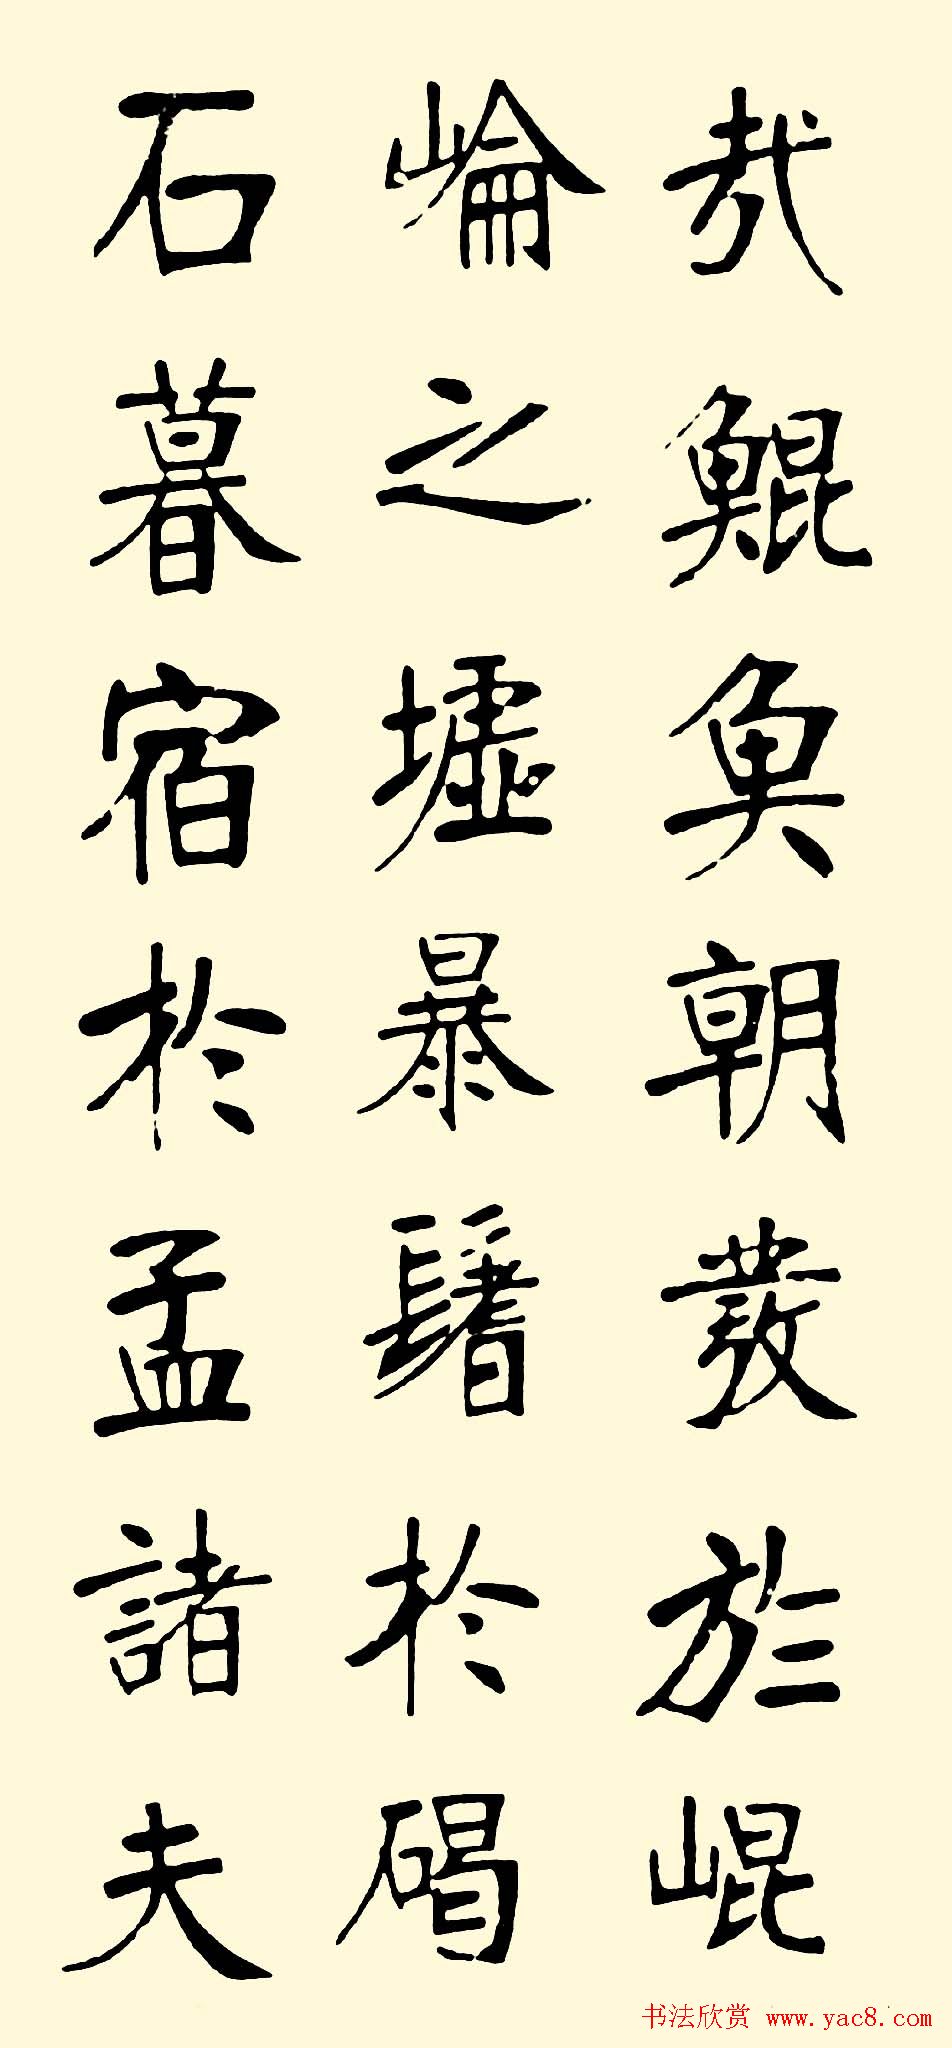 哉鯤魚朝發於崐
崘之墟暴鬐於碣
石暮宿於孟諸夫
书法欣赏 www.yac8.com